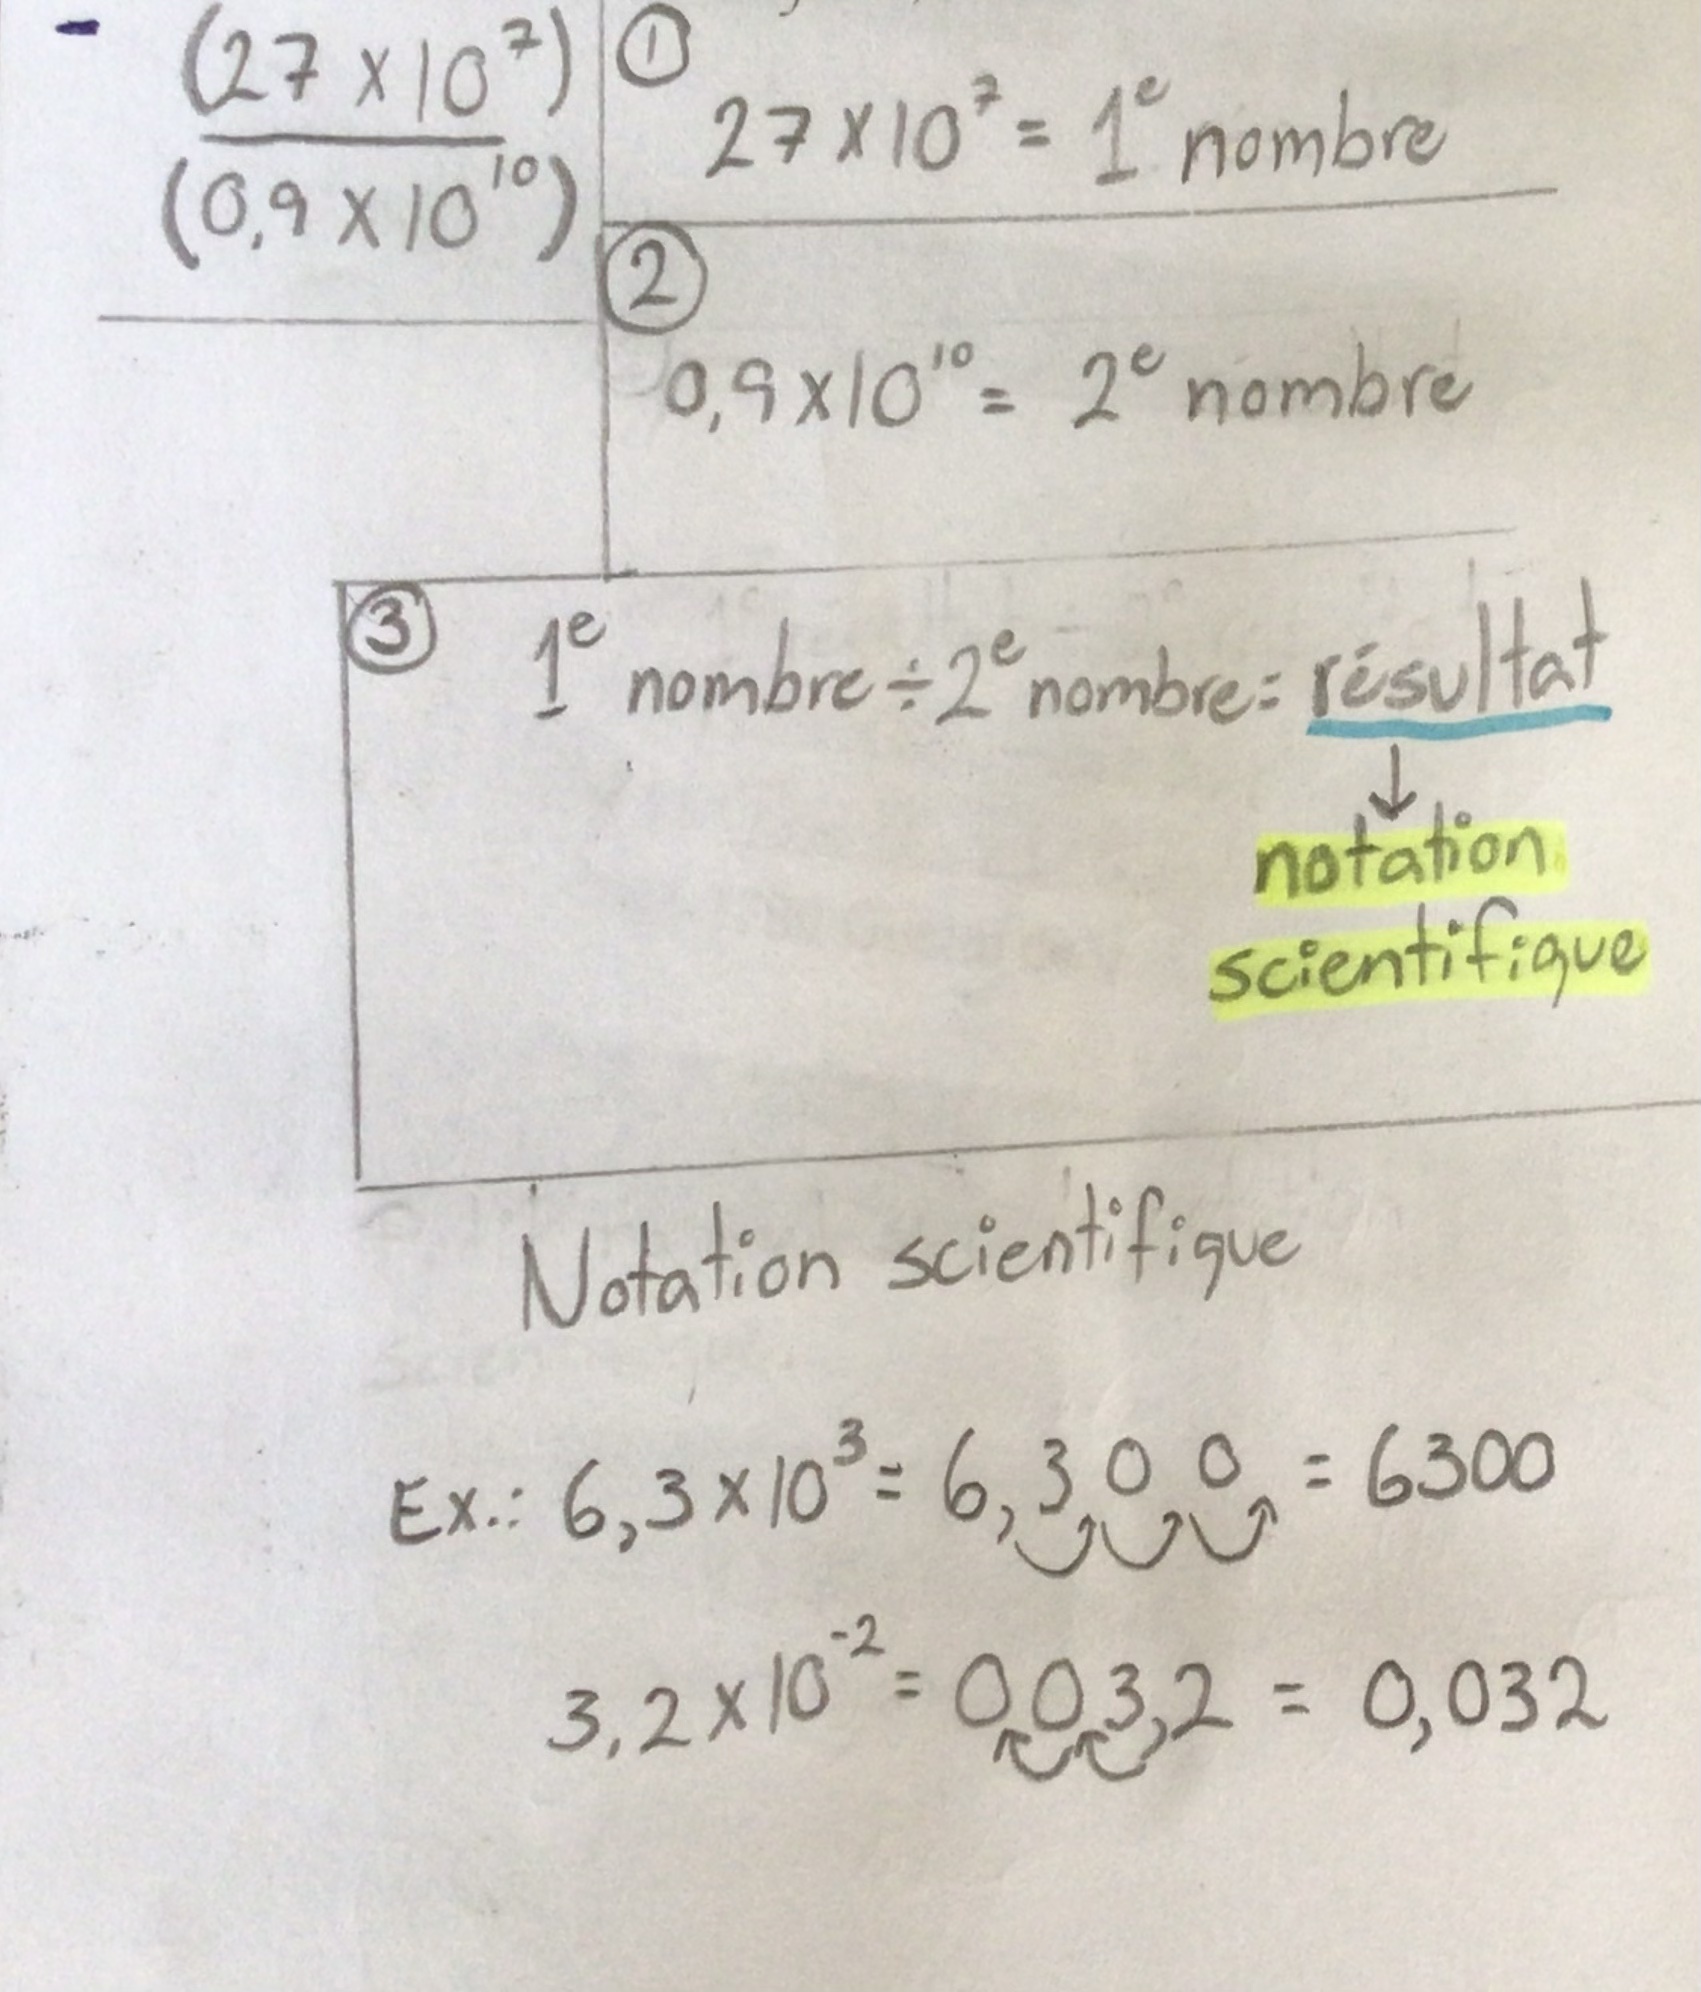 (27 x 10⁷)
(0,9 x 10¹⁰)
①
27 x 10⁷ = 1ᵉ nombre
②
0,9 x 10¹⁰ = 2ᵉ nombre
③ 1ᵉ nombre ÷ 2ᵉ nombre = résultat
↓
notation
scientifique
Notation scientifique
Ex.: 6,3 x 10³ = 6,300 = 6300
3,2 x 10⁻² = 003,2 = 0,032